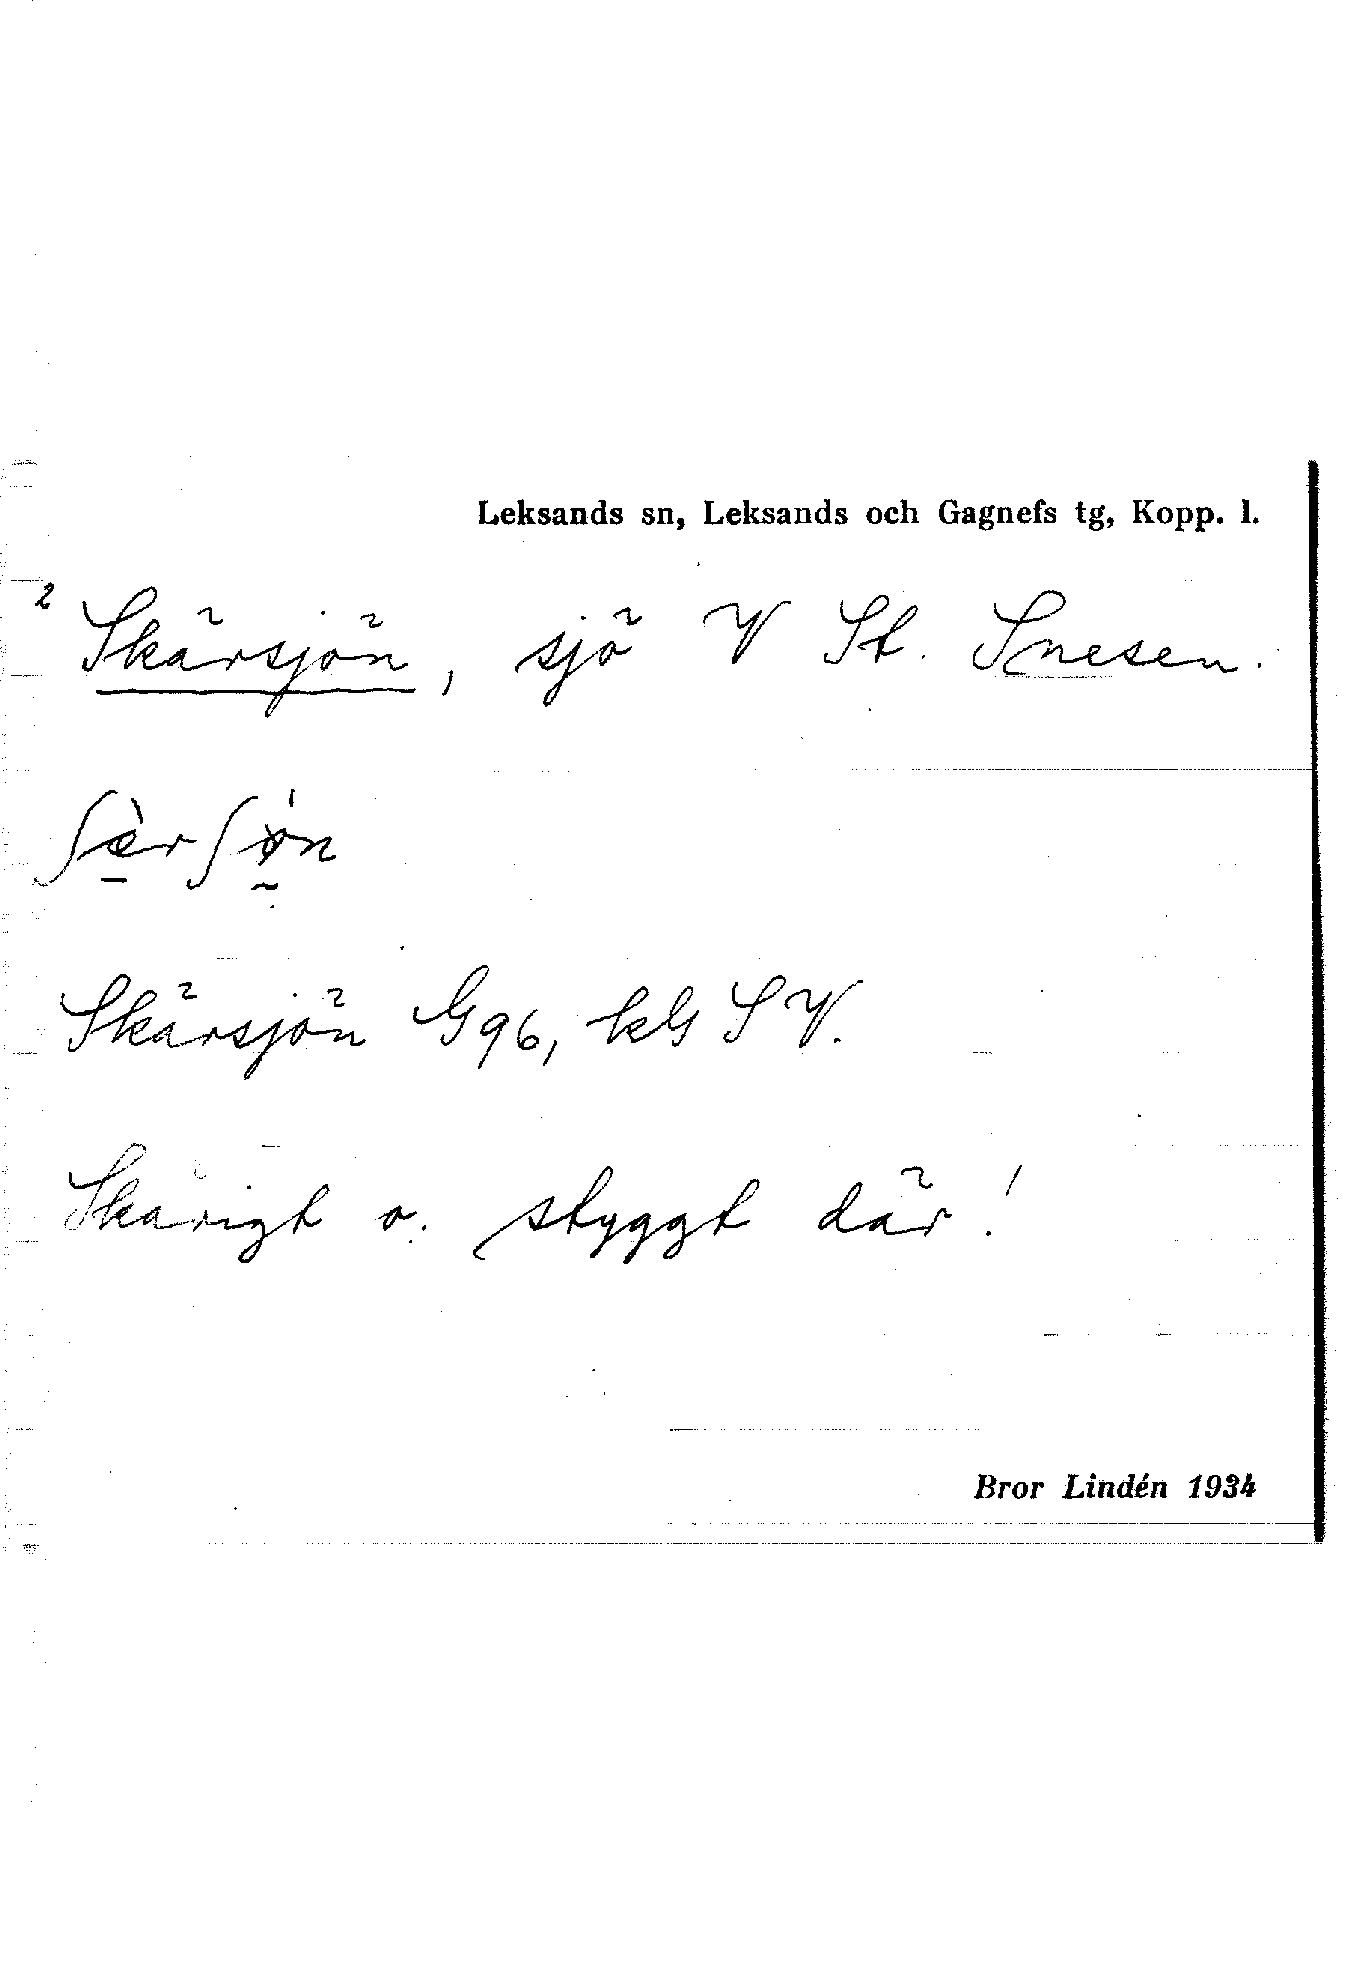 Leksands sn, Leksands och Gagnefs tg, Kopp. l.
2 Skärsjön, sjö V St. Snesen.
ʃæ̀rʃø̀n
Skärsjön G96, kG SV.
Skärigt o. styggt där!
Bror Lindén 1934